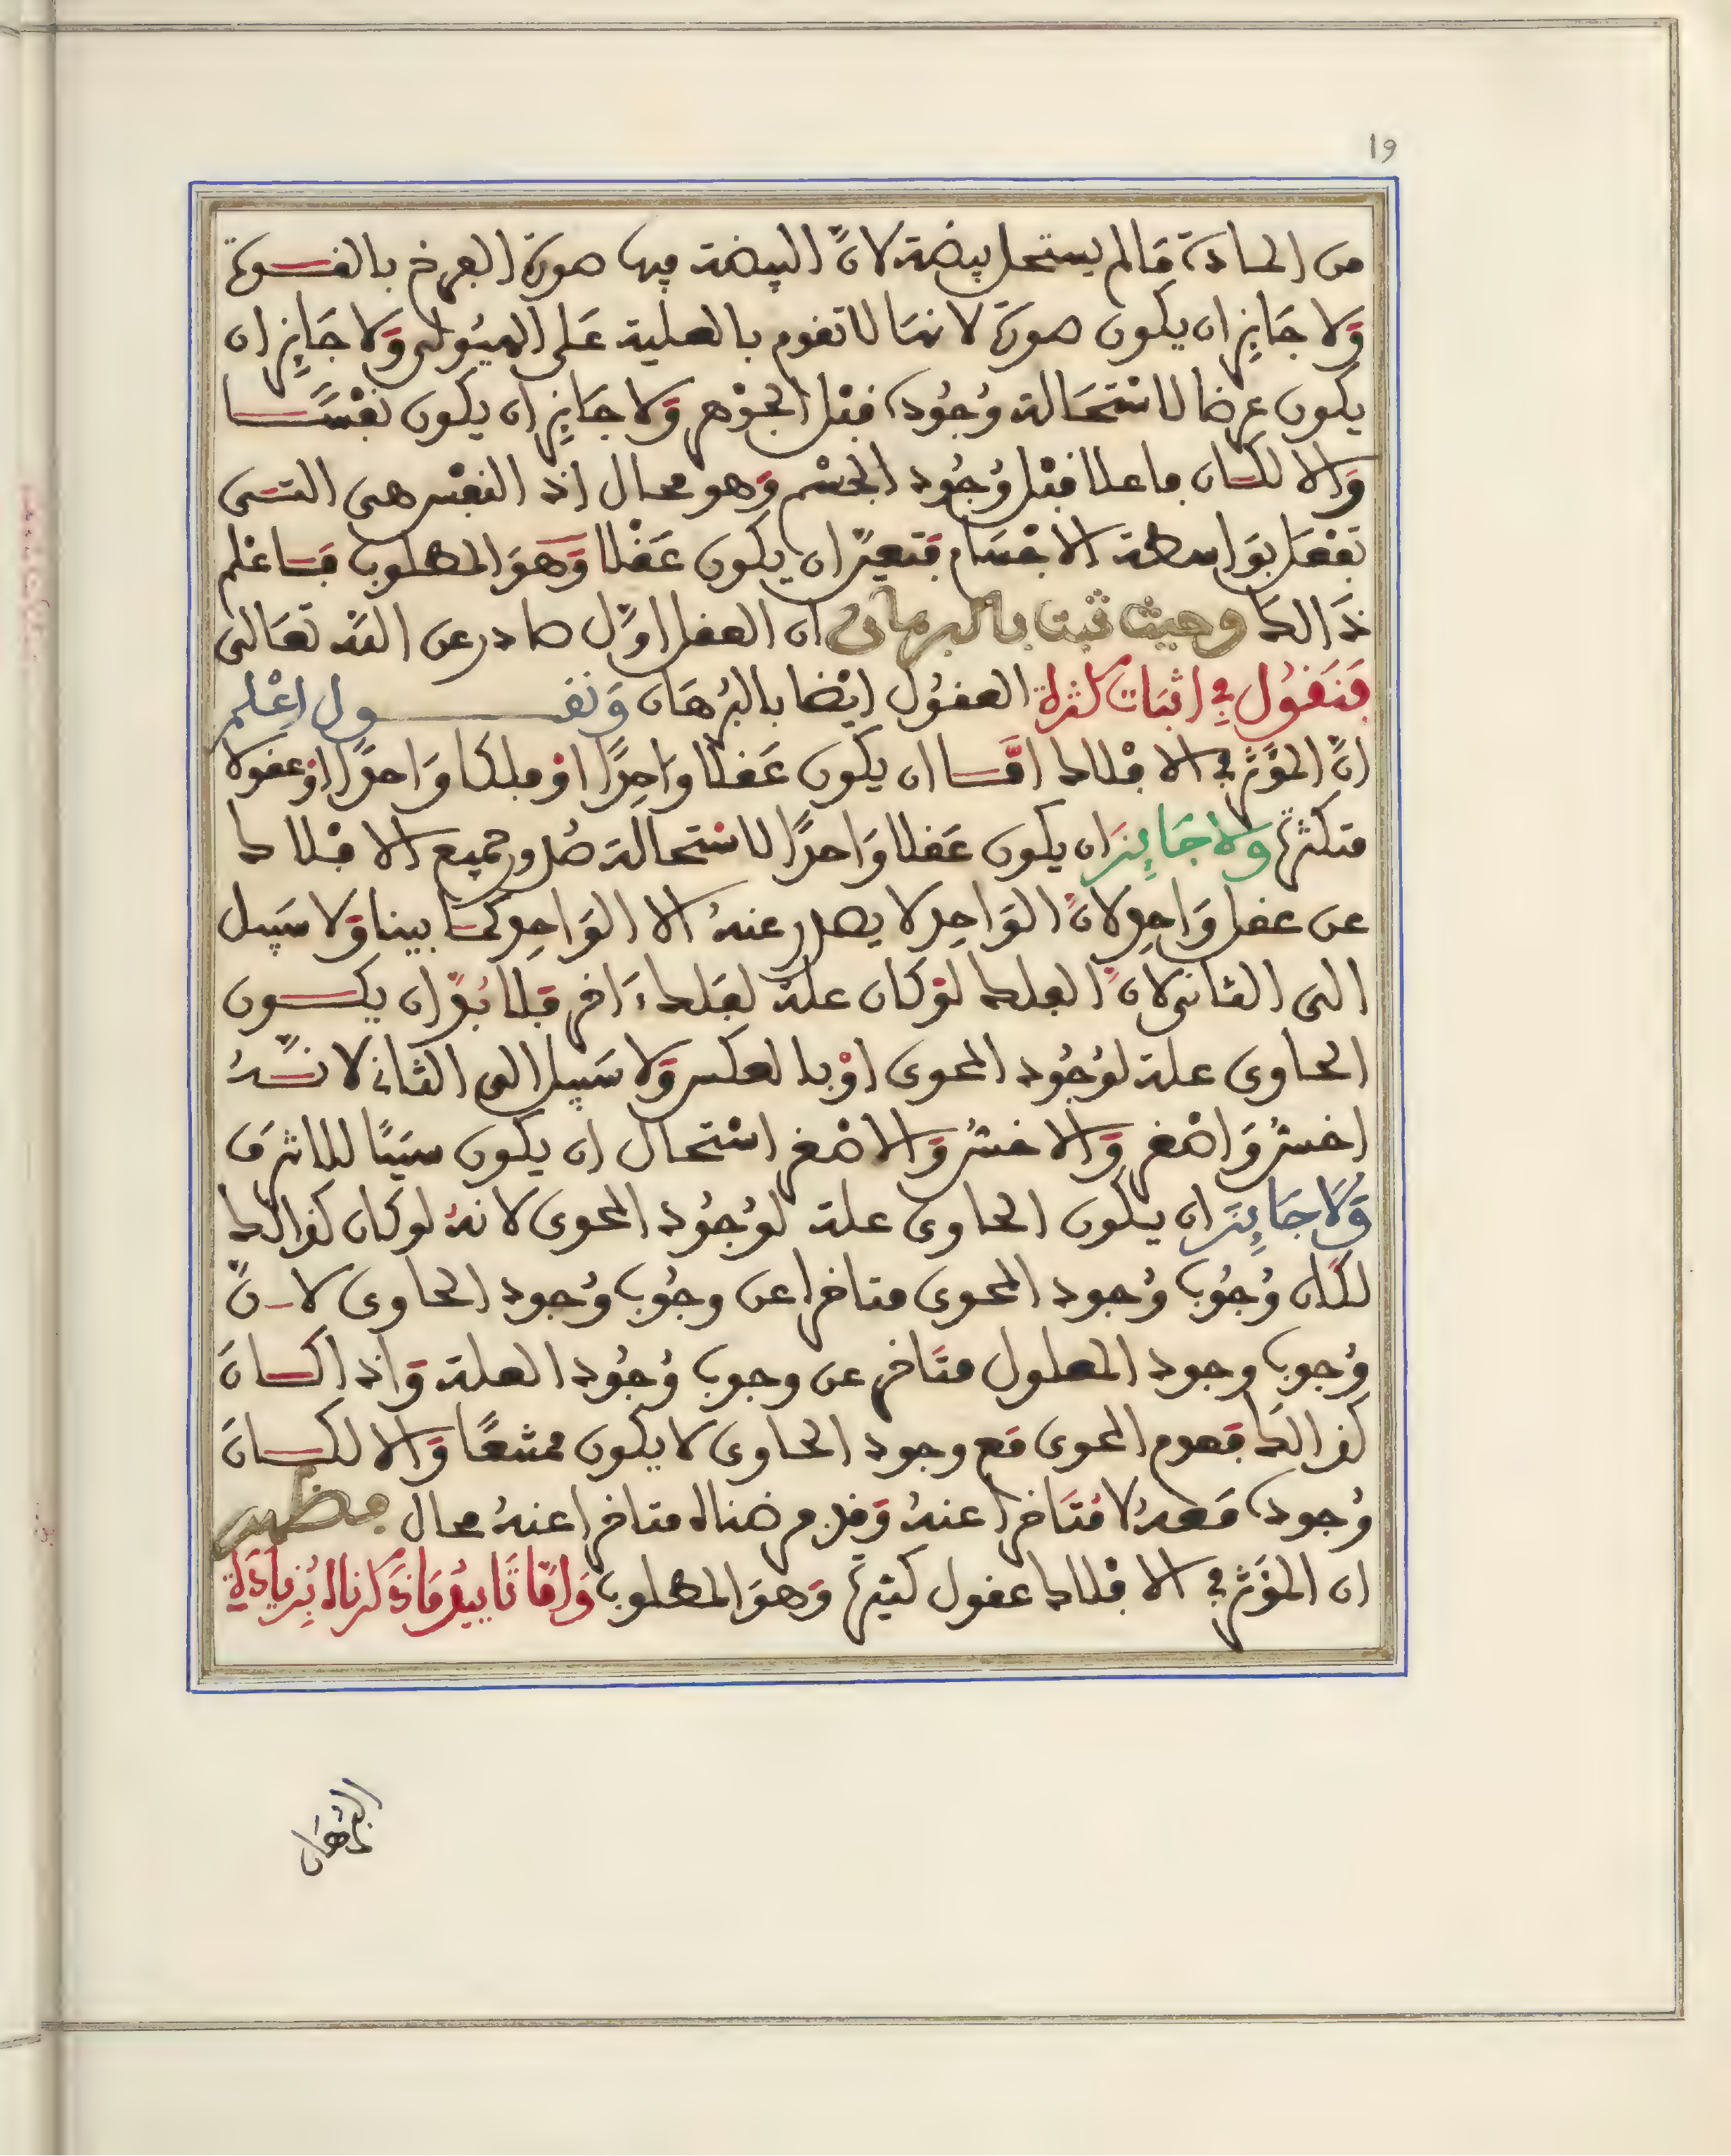 19
من المادة ما لم يستحل بيضة لانّ البيضة فيها صورة الفرخ بالقسوة
وَلا جَايِز ان يكون صورة لانها لا تقوم بالعلية عَلى الهيُولى وَلا جَايِز ان
يكون عرضا لاسْتحَالة وُجُوده قبْل الجوْهر وَلا جَايِز ان يكون نفْسًا
وَالا لكان فاعلا قبْل وُجُود الجسْم وَهو محال اذ النفْس هى التى
تفْعَل بوَاسطة الاجْسَام فتعيّن ان يكون عَقْلا وَهوَ المطلوب فَاعْلم
ذَالك وحيث ثبت بالبرهان ان العقل اوّل صادر عن الله تعَالى
فَنَقُول فِي اثبَات كثرة العقُول ايْضا بالبُرهَان وَنقول اِعْلم
انّ المؤثر في الافْلاك امَّا ان يكون عَقلا وَاحِدًا اوْ فلكا وَاحدًا اوْ عقولا
متكثرة وَلا جَايِز ان يكون عَقلا وَاحدًا لاسْتحالة صُدور جميع الافْلاك
عن عقل وَاحِد لانّ الوَاحِد لا يصدر عنهُ الا الوَاحِد كمَا بينا وَلا سَبيل
الى الثانى لانّ الفلك لوْ كان علة لفَلك ءَاخر فَلا بُدّ ان يكون
الحاوى علة لوُجُود المحوى اوْ بالعكس وَلا سَبيل الى الثانى لانّهُ
اخسّ وَاصْغر وَالاخسّ وَالاصْغر اسْتحال ان يكون سَببًا للاشرَف
وَلَا جَايِز ان يكون الحاوى علة لوُجُود المحوى لانهُ لو كان كذالك
لكان وُجُوب وُجود المحوى متاخرا عن وجُوب وُجود الحاوى لانّ
وُجوب وجود المعلول متَاخر عن وجوب وُجُود العلة وَاذا كانَ
كذالك فعدم المحوى مَع وجود الحاوى لا يكون ممتنعًا وَالا لكانَ
وُجوده مَعهُ لا مُتَاخرا عنهُ وَقد فرضناه متاخرا عنهُ محال فظهر
ان المؤثر في الافْلاك عقول كثيرة وَهوَ المطلوب وَامَّا تَايِيدُ مَا ذَكرناه بُزِيَادَة
البُرهَان